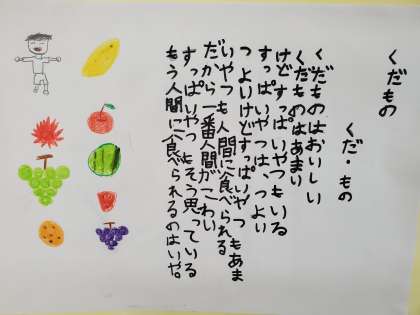 くだもの
くだ・もの
くだものはおいしい
くだものはあまい
けどすっぱいやつもいる
すっぱいやつは、つよい
つよいけどすっぱいやつもあま
いやつも人間に食べられる
だから一番人間がこわい
すっぱいやつもそう思っている
もう人間に食べられるのはいや。